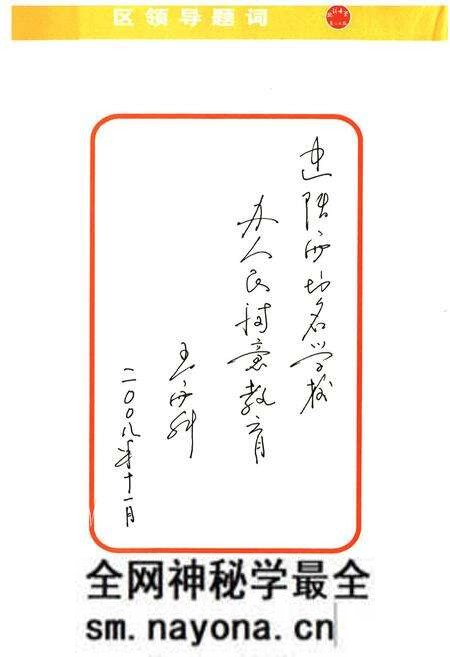 区领导题词
建陕西知名学校
办人民满意教育
二〇〇八年十一月
全网神秘学最全
sm.nayona.cn